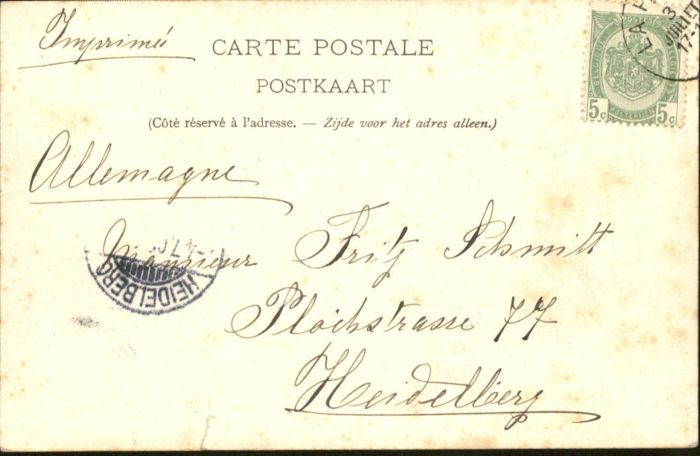 Imprimé
CARTE POSTALE
POSTKAART
(Côté réservé à l'adresse. — Zijde voor het adres alleen.)
5c 5c
3
JUIL
Allemagne
Monsieur Fritz Schmitt
HEIDELBERG
Plöckstrasse 77
Heidelberg